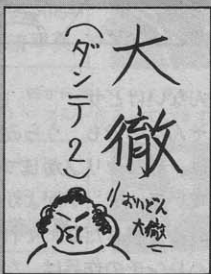 大徹
（ダンテ2）
おいどん
大徹